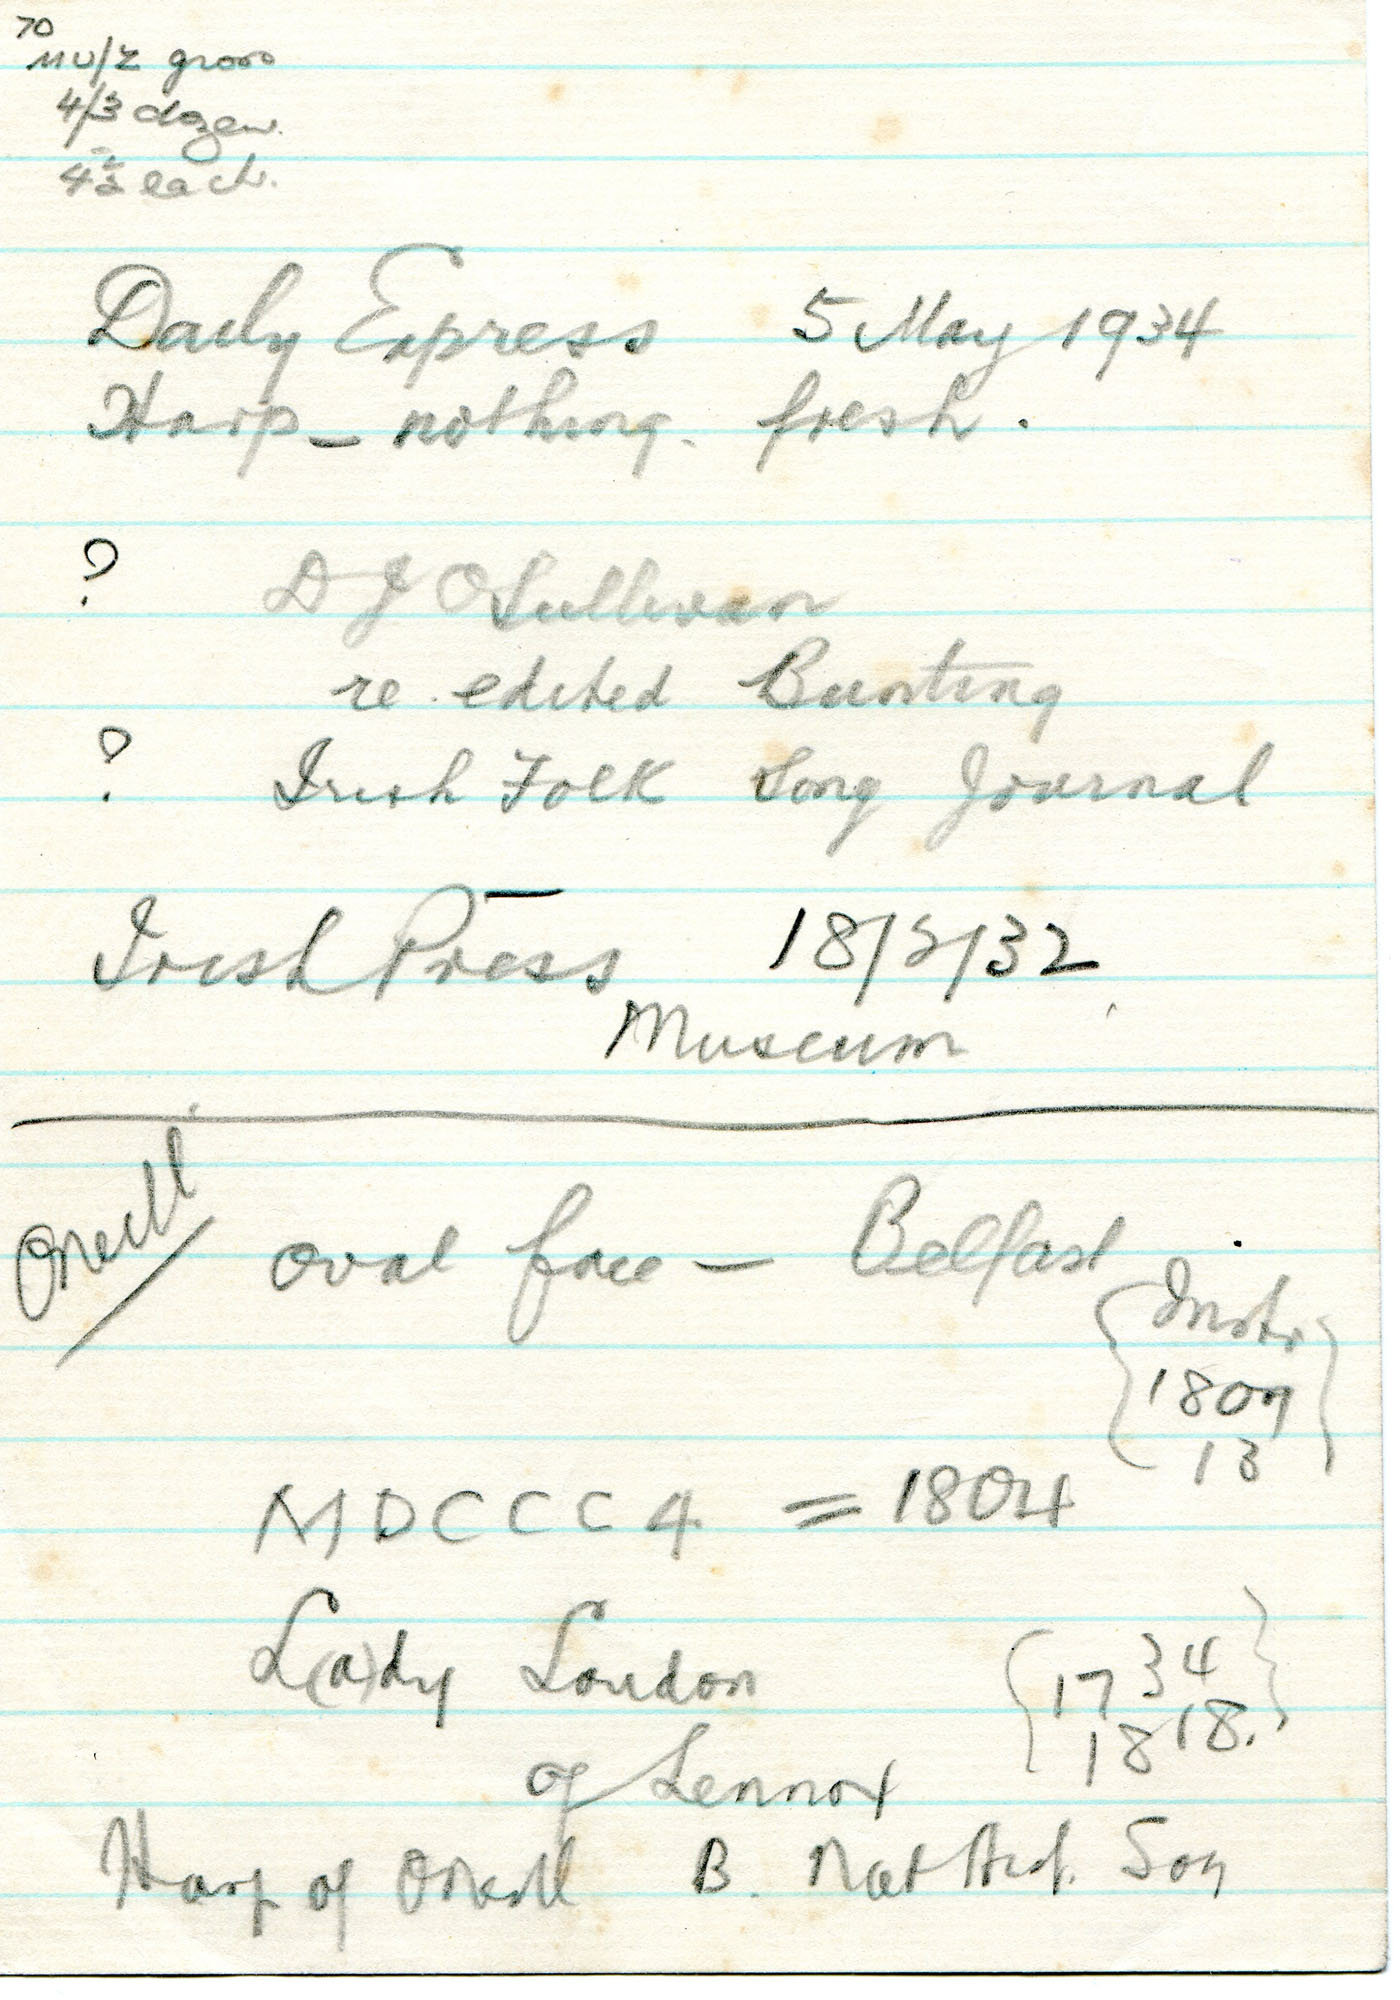 70
gross
4/3 dozen.
each.
Daily Express 5 May 1934
Harp — nothing. fresh.
? D J OSullivan
re. edited Bunting
? Irish Folk Song Journal
Irish Press 18/2/32
Museum
Oneill
oval face — Belfast
{Instr.
1807
13}
MDCCC4 = 1804
L(a)dy Loudon {1734
of Lennox 1818.}
Harp of ONeill B. Nat Hist. Soy